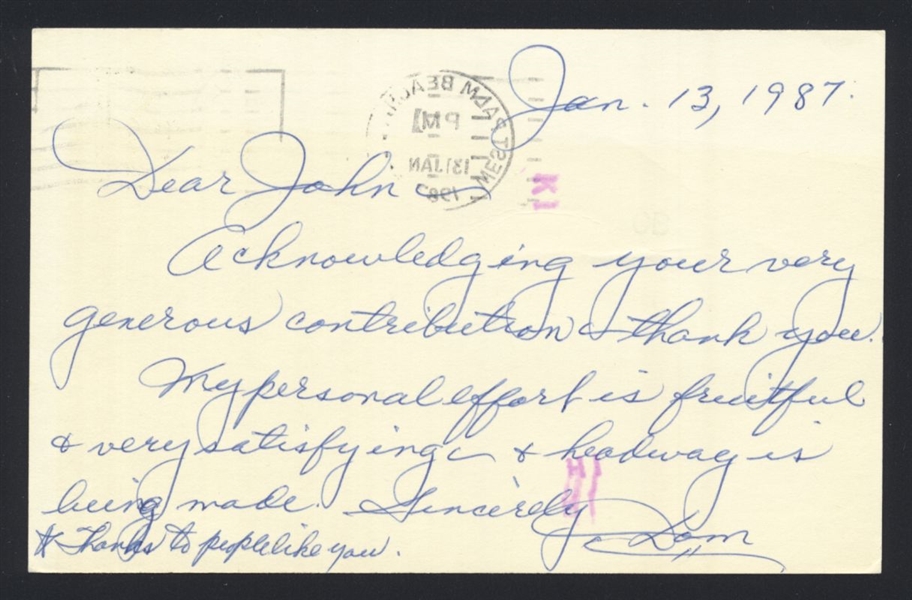 Jan. 13, 1987.
WEST PALM BEACH
PM
13 JAN
1987
Dear John
Acknowledging your very
generous contribution & thank you.
My personal effort is fruitful
& very satisfying & headway is
being made. Sincerely
Dom
* Thanks to people like you.